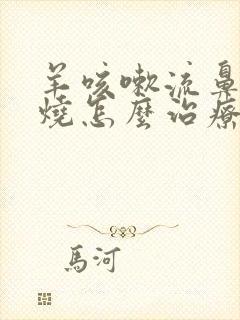 羊咳嗽流鼻
燒怎麼治療
馬河